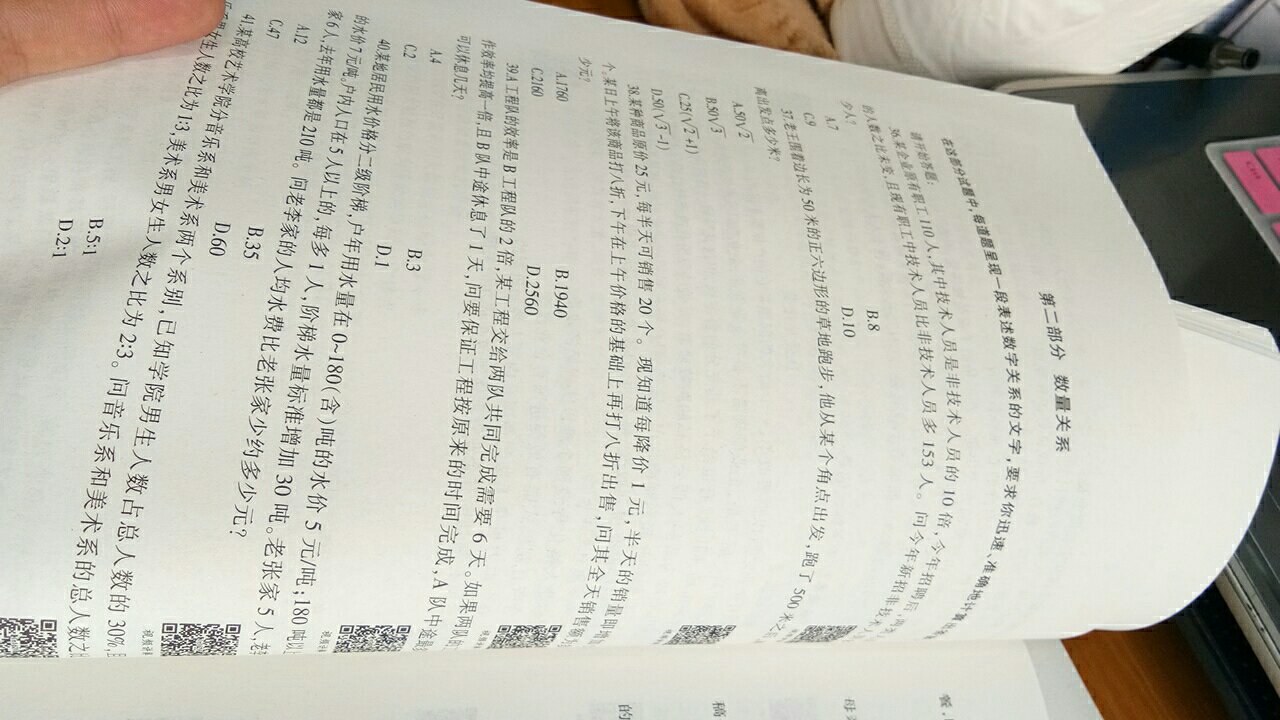 第二部分 数量关系
在这部分试题中,每道题呈现一段表述数字关系的文字,要求你迅速、准确地计算
请开始答题:
36.某企业原有职工110人,其中技术人员是非技术人员的10倍,今年招聘后,两类
的人数之比未变,且现有职工中技术人员比非技术人员多153人。问今年新招非技术
少人?
A.7 B.8
C.9 D.10
37.老王围着边长为50米的正六边形的草地跑步,他从某个角点出发,跑了500米之
离出发点多少米?
A.50√2
B.50√3
C.25(√2+1)
D.50(√3-1)
38.某种商品原价25元,每半天可销售20个。现知道每降价1元,半天的销量即增
个,某日上午将该商品打八折,下午在上午价格的基础上再打八折出售,问其全天销售额
少元?
A.1760 B.1940
C.2160 D.2560
39.A工程队的效率是B工程队的2倍,某工程交给两队共同完成需要6天。如果两队的
作效率均提高一倍,且B队中途休息了1天,问要保证工程按原来的时间完成,A队中途
可以休息几天?
A.4 B.3
C.2 D.1
40.某地居民用水价格分二级阶梯,户年用水量在0~180(含)吨的水价5元/吨;180吨以上
的水价7元/吨。户内人口在5人以上的,每多1人,阶梯水量标准增加30吨。老张家5人,老
家6人,去年用水量都是210吨。问老李家的人均水费比老张家少约多少元?
A.12 B.35
C.47 D.60
41.某高校艺术学院分音乐系和美术系两个系别,已知学院男生人数占总人数的30%,且
女生人数之比为1:3,美术系男女生人数之比为2:3。问音乐系和美术系的总人数之
B.5:1
D.2:1